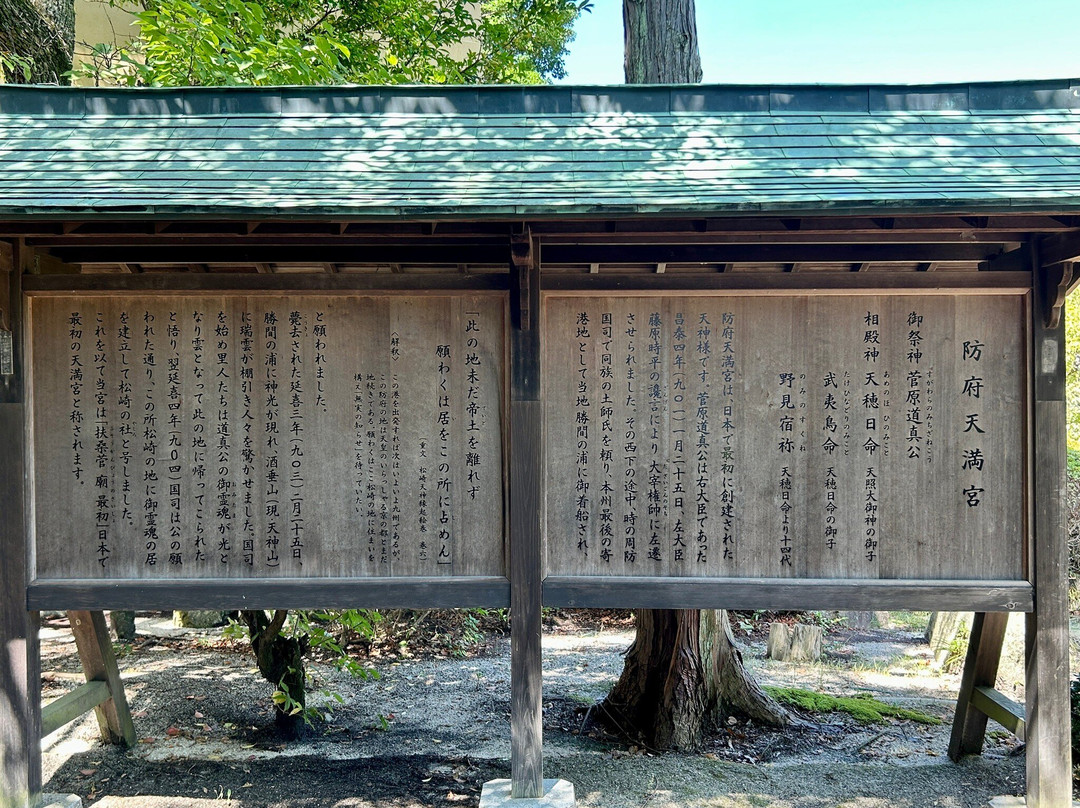 防府天満宮
御祭神 菅原道真公
すがわらのみちざねこう
相殿神 天穂日命 天照大御神の御子
あめのほひのみこと
武夷鳥命 天穂日命の御子
たけひなどりのみこと
野見宿祢 天穂日命より十四代
のみのすくね
防府天満宮は、日本で最初に創建された
天神様です。菅原道真公は右大臣であった
昌泰四年(九〇一)一月二十五日、左大臣
藤原時平の讒言により大宰権帥に左遷
させられました。その西下の途中、時の周防
国司で同族の土師氏を頼り、本州最後の寄
港地として当地勝間の浦に御着船され、
「此の地未だ帝土を離れず
願わくは居をこの所に占めん」
(重文 松崎天神縁起絵巻 巻六)
〈解釈〉この港を出発すれば次はいよいよ九州であるが、
この防府の地は天皇のいらっしゃる京の都とまだ
地続きである。願わくはここ松崎の地に住まいを
構え「無実の知らせ」を待っていたい。
と願われました。
薨去された延喜三年(九〇三)二月二十五日、
勝間の浦に神光が現れ、酒垂山(現 天神山)
に瑞雲が棚引き人々を驚かせました。国司
を始め里人たちは道真公の御霊魂が光と
なり雲となって此の地に帰ってこられた
と悟り、翌延喜四年(九〇四)国司は公の願
われた通り、この所松崎の地に御霊魂の居
を建立して松崎の社と号しました。
これを以て当宮は「扶桑菅廟最初」日本で
最初の天満宮と称されます。